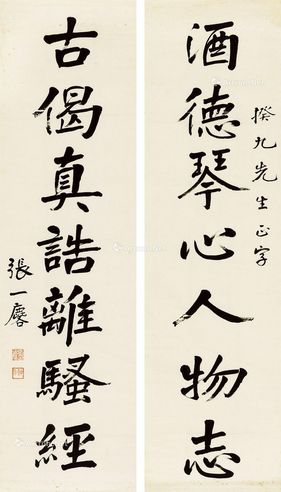 酒德琴心人物志
揆九先生正字
古偈真誥離騷經
張一麐